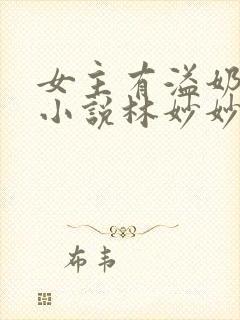 女主有溢奶
小說林妙妙
布韦